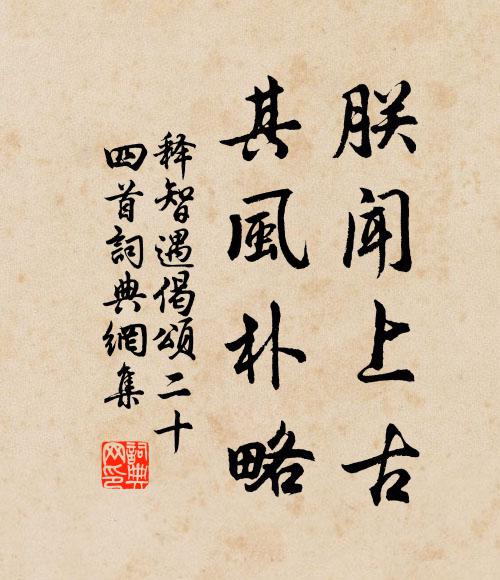 朕闻上古
其風朴略
释智遇偈頌二十
四首詞典網集
詞典
网印